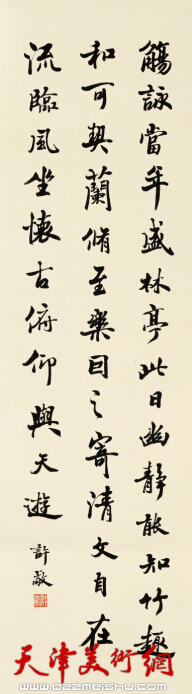 觴詠當年盛林亭此日幽靜能知竹趣
和可契蘭脩至樂因之寄清文自在
流臨風坐懷古俯仰與天遊
許敬
天津美術網
www.022meishu.com